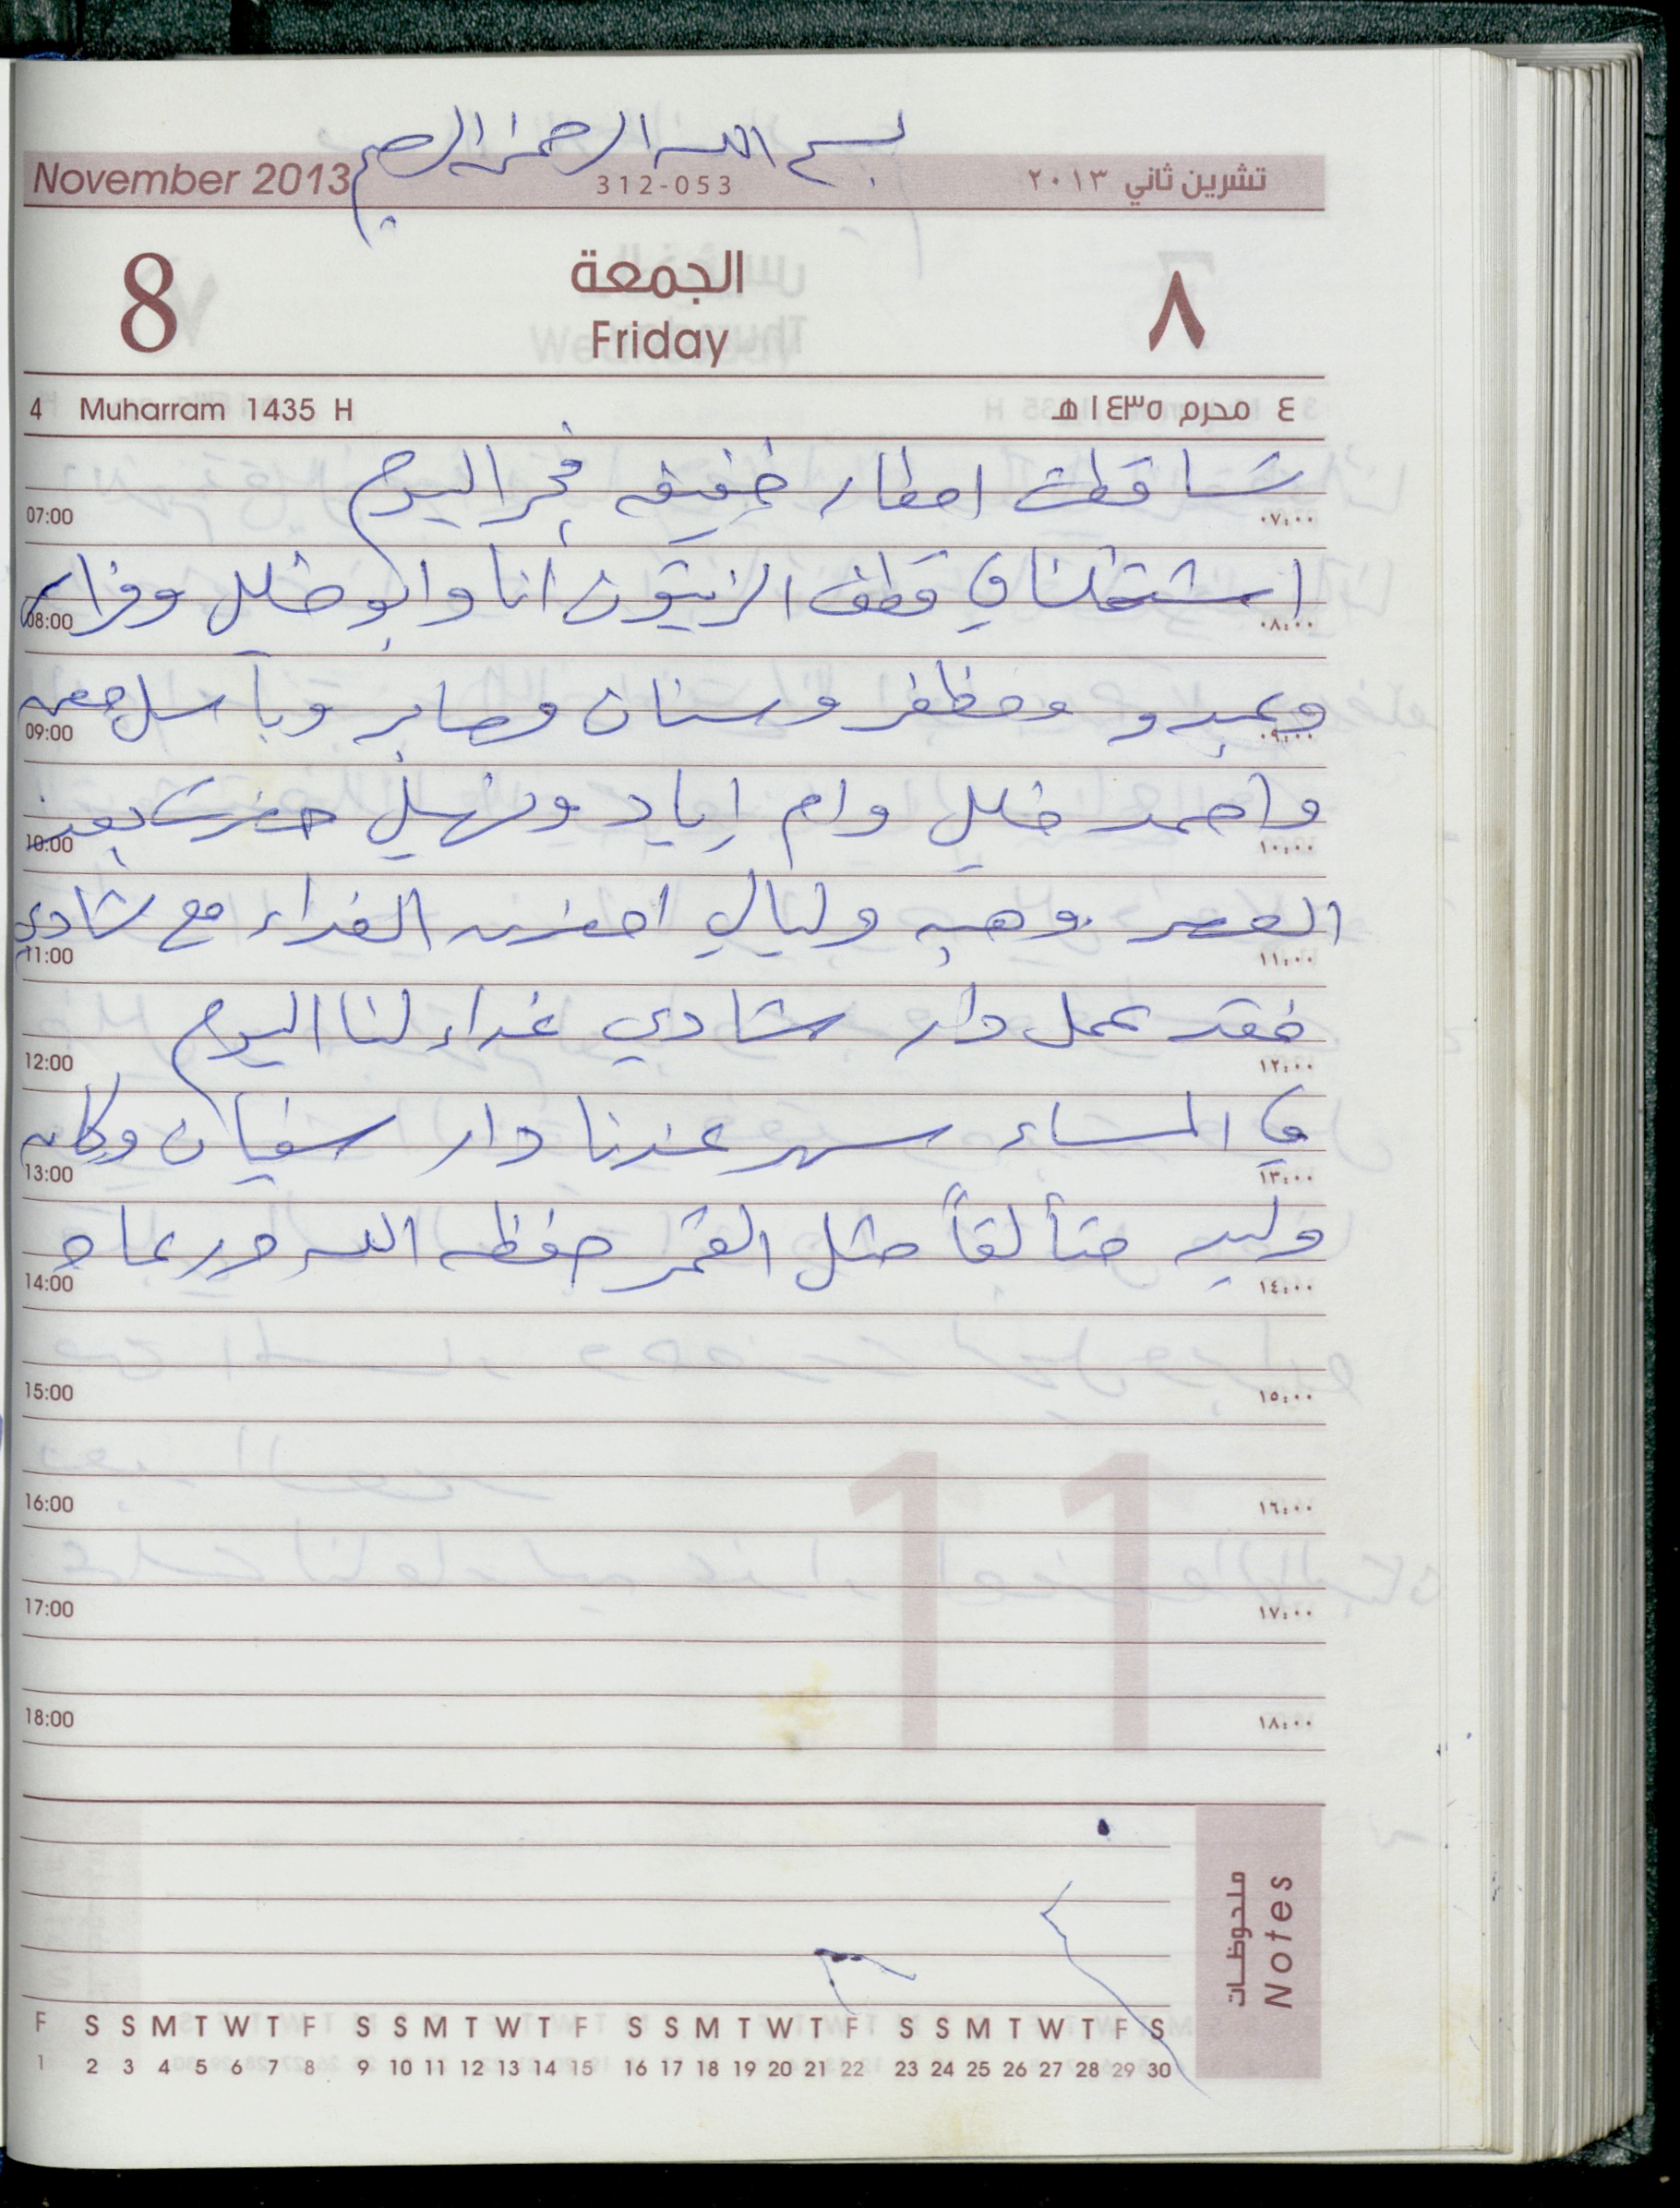 بسم الله الرحمن الرحيم
November 2013 312-053 تشرين ثاني ٢٠١٣
8 الجمعة ٨
Friday
4 Muharram 1435 H ٤ محرم ١٤٣٥ هـ
تساقطت امطار خفيفه فجر اليوم
07:00 ٠٧:٠٠
اشتغلنا في قطف الزيتون انا وابو خليل وفراس
08:00 ٠٨:٠٠
وعبد و ومظفر وسنان وصابر وباسل معه
09:00 ٠٩:٠٠
واحمد خليل وام إياد ونهيل حضرت بعد
10:00 ١٠:٠٠
العصر وهبه وليالي احضرن الغداء مع شادي
11:00 ١١:٠٠
فقد عمل دار شادي غداء لنا اليوم
12:00 ١٢:٠٠
في المساء سهر عندنا دار سفيان وكان
13:00 ١٣:٠٠
وليد متألقاً مثل القمر حفظه الله ورعاه
14:00 ١٤:٠٠
15:00 ١٥:٠٠
16:00 ١٦:٠٠
17:00 ١٧:٠٠
18:00 ١٨:٠٠
11
ملحوظات
Notes
F S S M T W T F S S M T W T F S S M T W T F S S M T W T F S
1 2 3 4 5 6 7 8 9 10 11 12 13 14 15 16 17 18 19 20 21 22 23 24 25 26 27 28 29 30